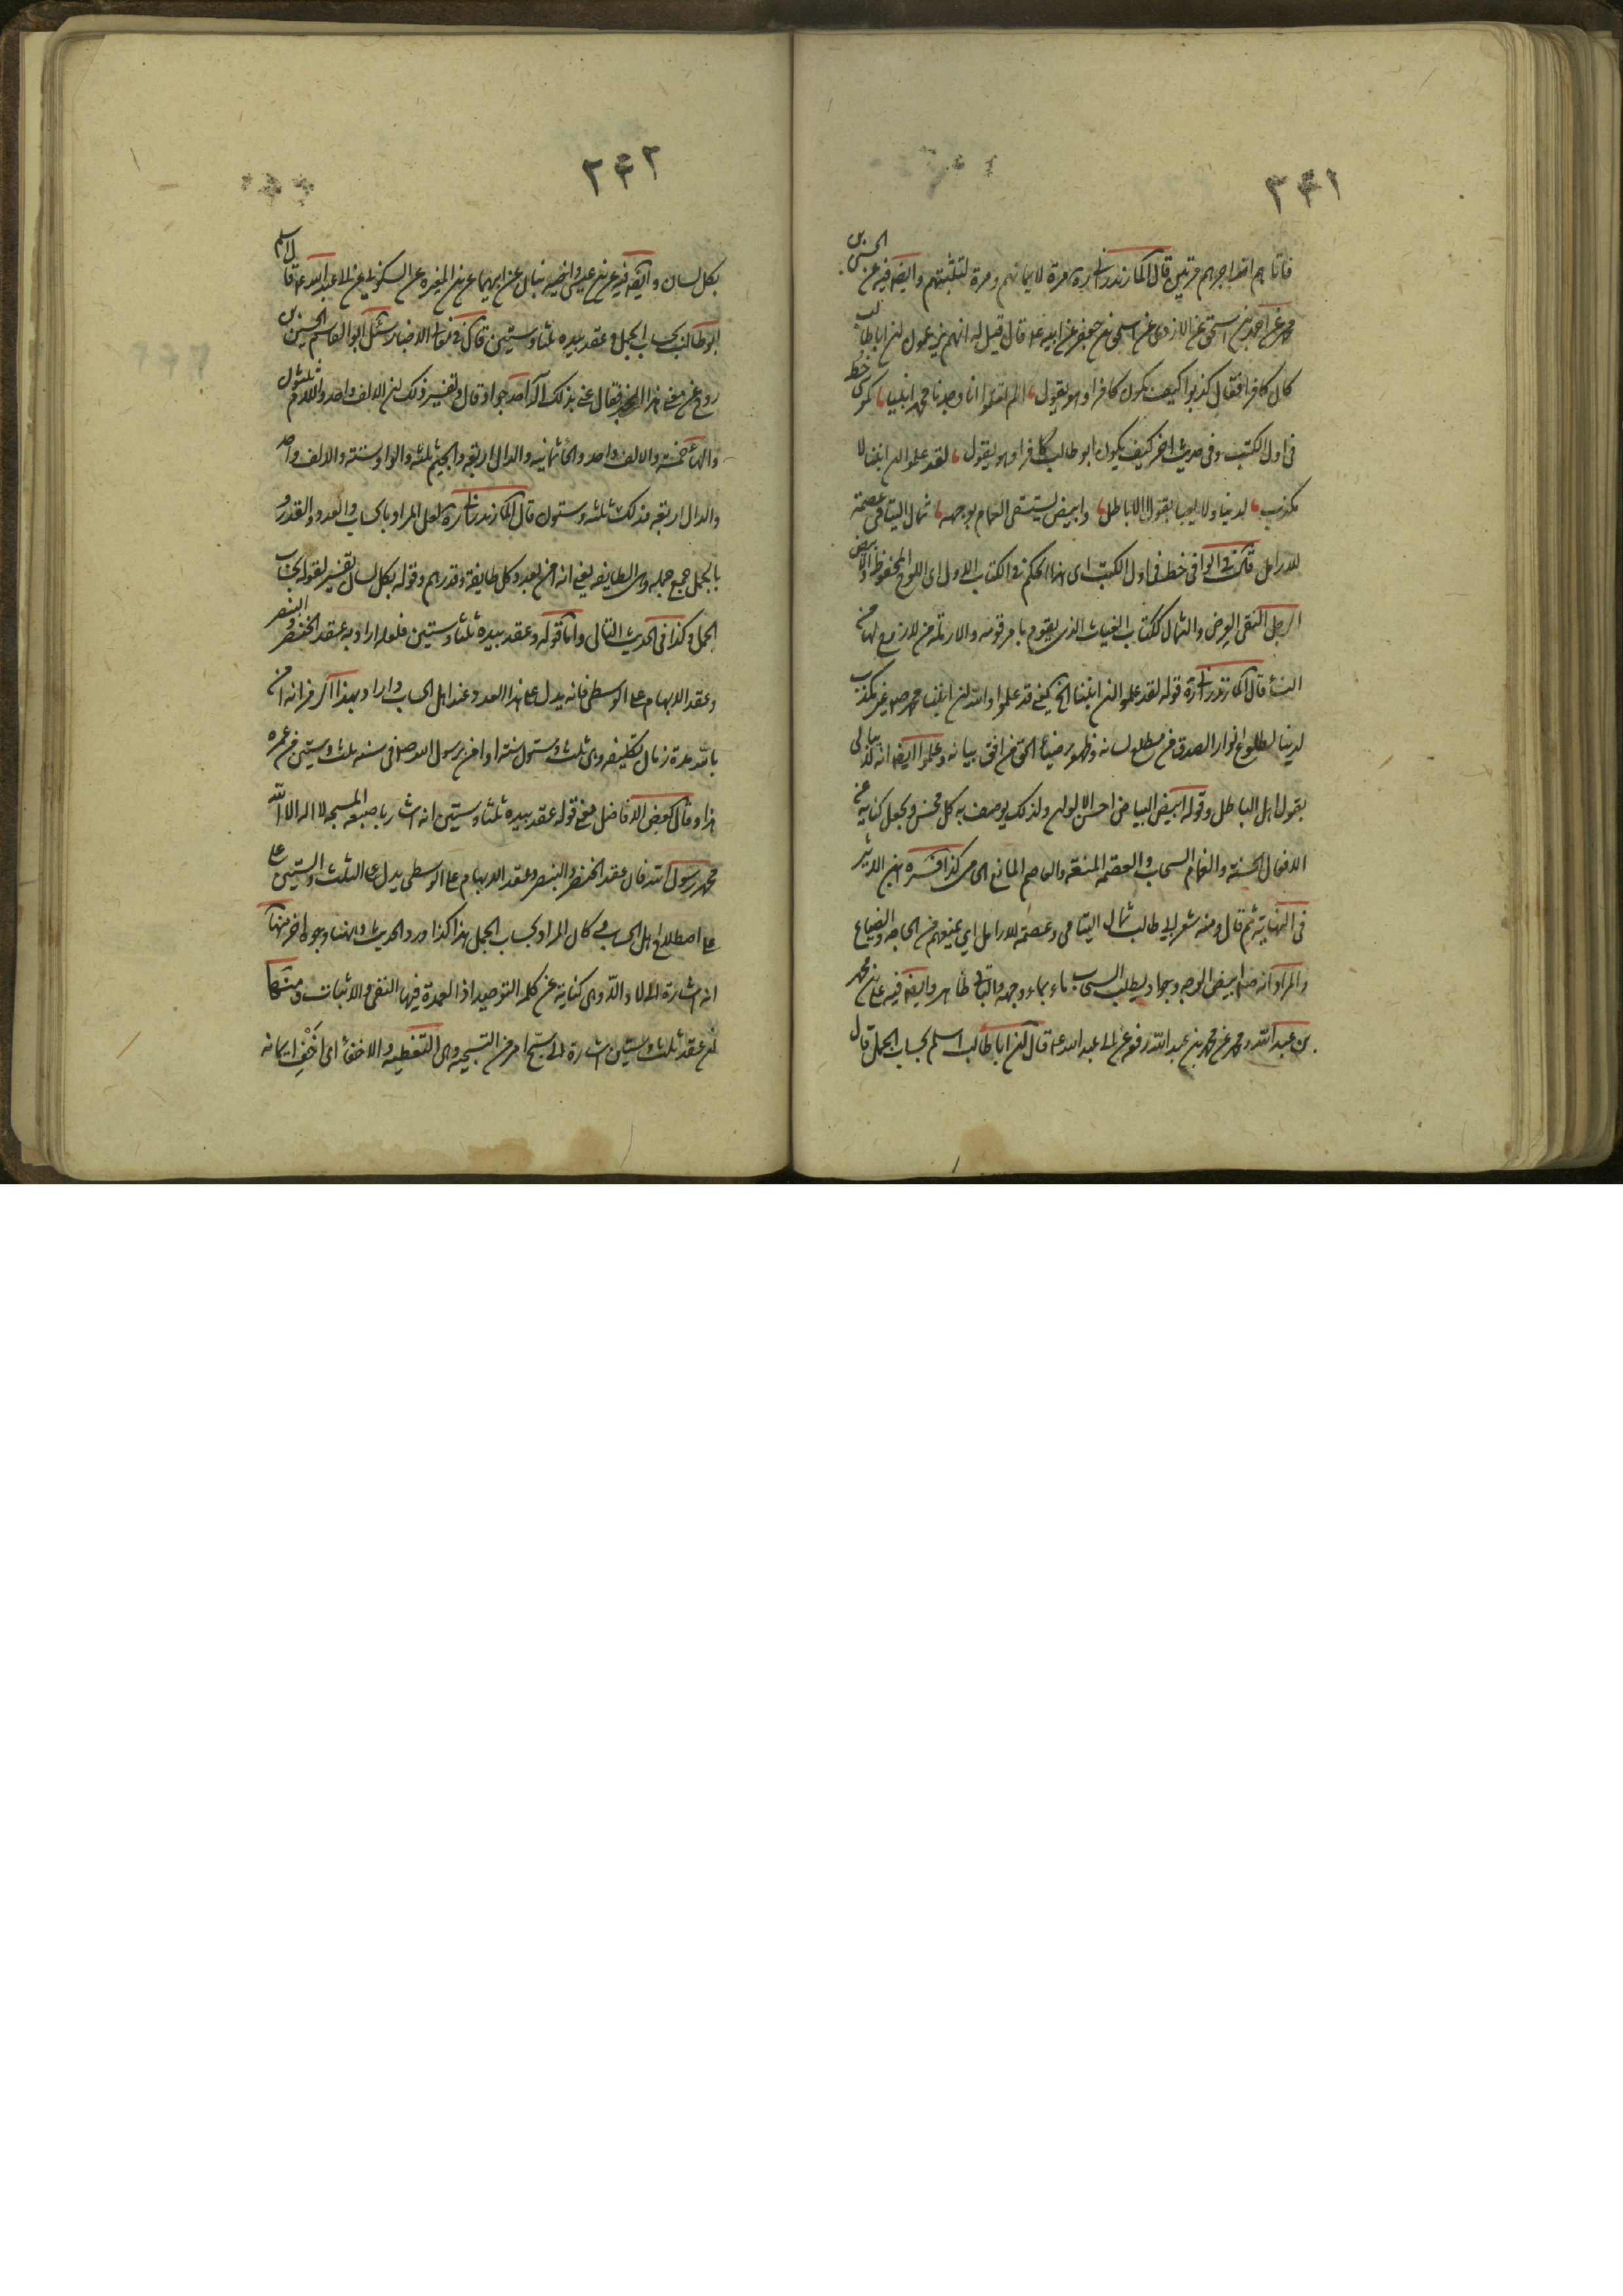 ٢٤١
فاتاهم الله اجرهم مرتين قال المازندرانى ره مرة لايمانهم ومرة لتثبتهم وايضا فيه عن الحسين بن
محمد عن احمد بن اسحق عن الازدى عن اسحق بن جعفر عن ابيه ع قال قيل له انهم يزعمون ان ابا طالب
كان كافرا فقال كذبوا كيف يكون كافرا وهو يقول الم تعلموا انا وجدنا محمدا نبيا كموسى خط
فى اول الكتب وفى حديث اخر كيف يكون ابو طالب كافرا وهو يقول لقد علموا ان ابننا لا
مكذب لدينا ولا يعبأ بقول الاباطل وابيض يستسقى الغمام بوجهه ثمال اليتامى عصمة
للارامل قال فى الوافى خط فى اول الكتب اى هذا الحكم فى الكتاب الاول اى اللوح المحفوظ والابيض
الرجل النقى العرض والثمال ككتاب الغياث الذى يقوم بامر قومه والارملة من لا زوج لها من
النساء قال المازندرانى ره قوله لقد علموا ان ابننا الخ يعنى قد علموا والله ان ابننا محمد ص غير مكذب
لدينا لطلوع انوار الصدق من مطلع لسانه وظهور ضياء الحق من افق بيانه وعلموا ايضا انه لا يبالى
بقول اهل الباطل وقوله ابيض البياض احسن الالوان ولذلك يوصف به كل محسن ويجعل كناية عن
الافعال الحسنة والغمام السحاب والعصمة المنعة والعاصم المانع الحامى كذا فسره ابن الاثير
فى النهاية ثم قال ومنه شعر ابى طالب ثمال اليتامى وعصمة للارامل اى يمنعهم من الحاجة والضياع
والمراد انه ص ابيض الوجه وجواد يطلب السحاب ماء بماء وجهه والباقى ظاهر وايضا فيه على بن محمد
بن عبد الله ومحمد عن محمد بن عبد الله رفعه عن ابى عبد الله ع قال ان ابا طالب اسلم بحساب الجمل قال
٢٤٢
بكل لسان وايضا فيه محمد بن يحيى عن احمد وعبد الله ابنى محمد بن عيسى عن ابيهما عن ابن المغيرة عن السكونى عن ابى عبد الله ع قال اسلم
ابو طالب بحساب الجمل وعقد بيده ثلثا وستين قال فى معانى الاخبار سئل ابو القاسم الحسين بن
روح عن معنى هذا الخبر فقال عنى بذلك اله احد جواد قال وتفسير ذلك ان الالف واحد واللام ثلثون
والهاء خمسة والالف واحد والحاء ثمانية والدال اربعة والجيم ثلثة والواو ستة والالف واحد
والدال اربعة فذلك ثلثة وستون قال المازندرانى ره لعل المراد بالحساب والعدد والقدر
بالجمل جمع جملة وهى الطايفة يعنى انه امن بعدد كل طايفة وقدرهم وقوله بكل لسان تفسير لقوله بحساب
الجمل وكذا فى الحديث التالى واما قوله وعقد بيده ثلثا وستين فلعله اراد به عقد الخنصر والبنصر
وعقد الابهام على الوسطى فانه يدل على هذا العدد عند اهل الحساب واراد بهذا الرمز انه امن
بالله مدة زمان تكليفه وهى ثلث وستون سنة او امن برسول الله ص فى سنة ثلث وستين من عمره
هذا وقال بعض الافاضل معنى قوله عقد بيده ثلثا وستين انه اشار باصبعه المسبحة لا اله الا الله
محمد رسول الله فان عقد الخنصر والبنصر وعقد الابهام على الوسطى يدل على الثلث والستين على
على اصطلاح اهل الحساب وكان المراد بحساب الجمل هذا كذا ورد الحديث وههنا وجوه اخر منها
انه اشارة الى لا والا وهى كناية عن كلمة التوحيد اذ العمدة فيها النفى والاثبات ومنها
ان عقد ثلث وستين اشارة الى سبّح امر من التسبيحة وهى التغطية والاخفاء اى اخفِ ايمانه